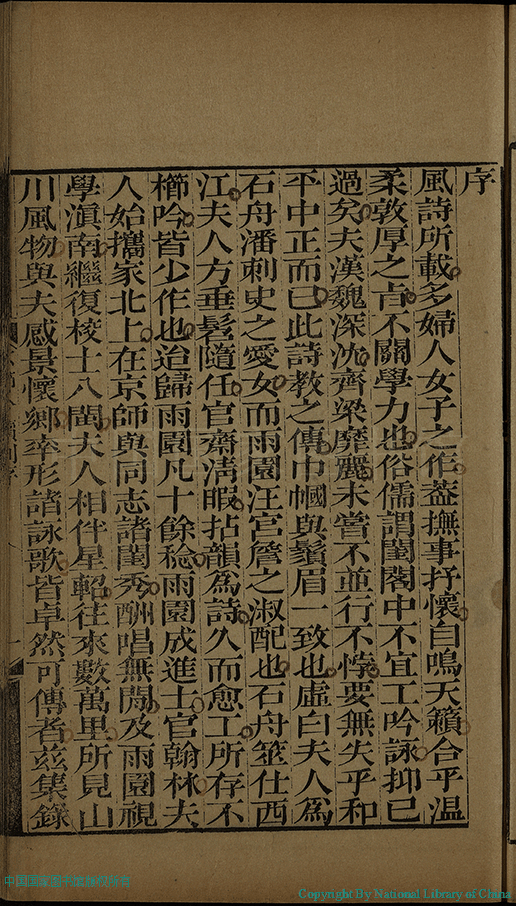 序
風詩所載多婦人女子之作葢撫事抒懷自鳴天籟合乎温
柔敦厚之㫖不關學力也俗儒謂閨閣中不宜工吟詠抑已
過矣夫漢魏深沈齊梁靡麗未嘗不並行不悖要無失乎和
平中正而已此詩教之傳巾幗與鬚眉一致也虛白夫人為
石舟潘刺史之愛女而雨園汪宫詹之淑配也石舟筮仕西
江夫人方垂髫隨任官齋淸暇拈韻為詩久而愈工所存不
櫛吟皆少作也迨歸雨園凡十餘稔雨園成進士官翰林夫
人始攜家北上在京師與同志諸閨秀酬唱無間及雨園視
學滇南繼復校士八閩夫人相伴星軺往來數萬里所見山
川風物與夫感景懷鄉率形諸詠歌皆卓然可傳者茲集錄
中国国家数字图书馆
Copyright By National Library of China